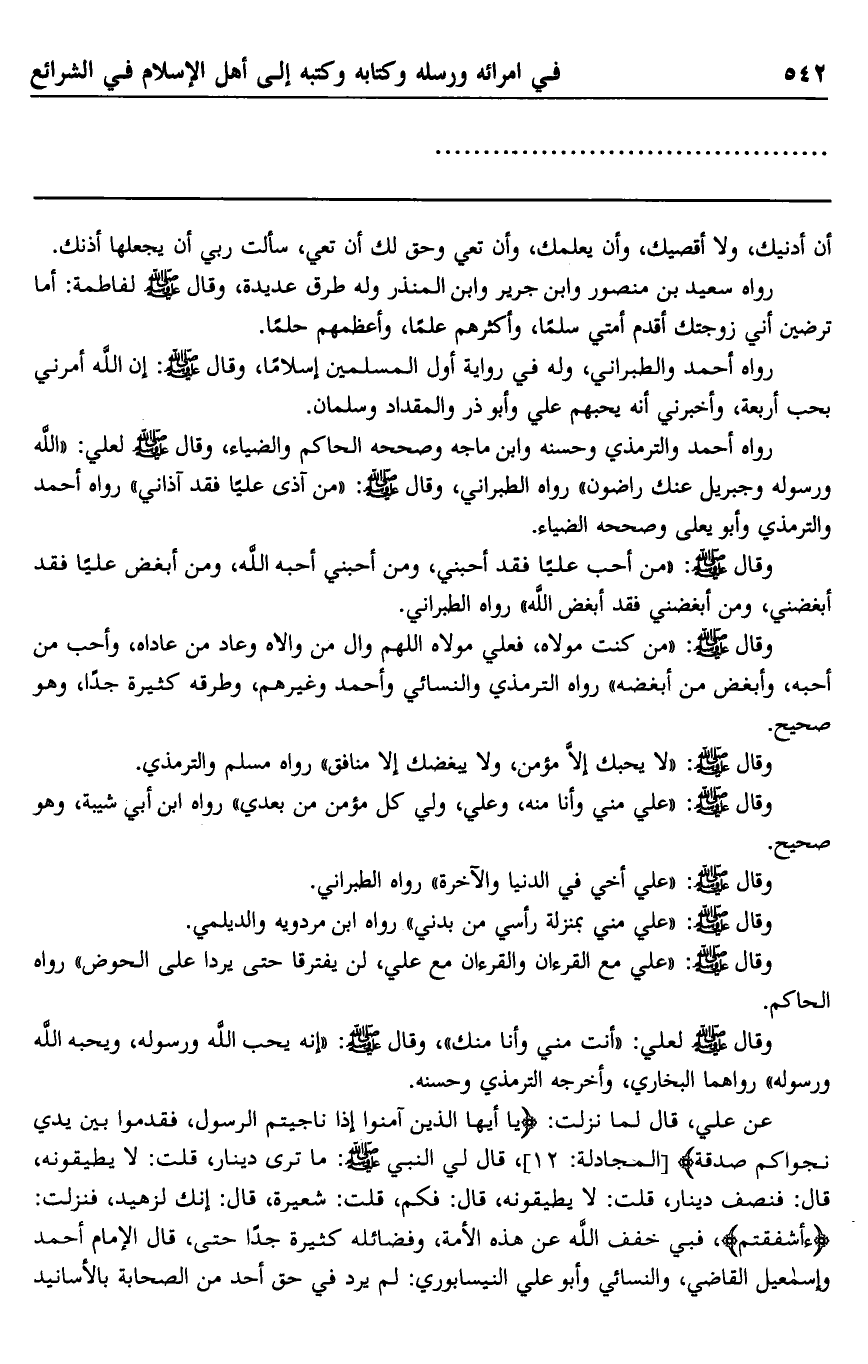 ٥٤٢ في امرائه ورسله وكتابه وكتبه إلى أهل الإسلام في الشرائع
.........................................
أن أدنيك، ولا أقصيك، وأن يعلمك، وأن تعي وحق لك أن تعي، سألت ربي أن يجعلها أذنك.
رواه سعيد بن منصور وابن جرير وابن المنذر وله طرق عديدة، وقال ﷺ لفاطمة: أما
ترضين أني زوجتك أقدم أمتي سلمًا، وأكثرهم علمًا، وأعظمهم حلمًا.
رواه أحمد والطبراني، وله في رواية أول المسلمين إسلامًا، وقال ﷺ: إن اللَّه أمرني
بحب أربعة، وأخبرني أنه يحبهم علي وأبو ذر والمقداد وسلمان.
رواه أحمد والترمذي وحسنه وابن ماجه وصححه الحاكم والضياء، وقال ﷺ لعلي: «اللَّه
ورسوله وجبريل عنك راضون» رواه الطبراني، وقال ﷺ: «من آذى عليًا فقد آذاني» رواه أحمد
والترمذي وأبو يعلى وصححه الضياء.
وقال ﷺ: «من أحب عليًا فقد أحبني، ومن أحبني أحبه اللَّه، ومن أبغض عليًا فقد
أبغضني، ومن أبغضني فقد أبغض اللَّه» رواه الطبراني.
وقال ﷺ: «من كنت مولاه، فعلي مولاه اللهم وال من والاه وعاد من عاداه، وأحب من
أحبه، وأبغض من أبغضه» رواه الترمذي والنسائي وأحمد وغيرهم، وطرقه كثيرة جدًا، وهو
صحيح.
وقال ﷺ: «لا يحبك إلاَّ مؤمن، ولا يبغضك إلا منافق» رواه مسلم والترمذي.
وقال ﷺ: «علي مني وأنا منه، وعلي، ولي كل مؤمن من بعدي» رواه ابن أبي شيبة، وهو
صحيح.
وقال ﷺ: «علي أخي في الدنيا والآخرة» رواه الطبراني.
وقال ﷺ: «علي مني بمنزلة رأسي من بدني» رواه ابن مردويه والديلمي.
وقال ﷺ: «علي مع القرءان والقرءان مع علي، لن يفترقا حتى يردا على الحوض» رواه
الحاكم.
وقال ﷺ لعلي: «أنت مني وأنا منك»، وقال ﷺ: «إنه يحب اللَّه ورسوله، ويحبه اللَّه
ورسوله» رواهما البخاري، وأخرجه الترمذي وحسنه.
عن علي، قال لما نزلت: ﴿يا أيها الذين آمنوا إذا ناجيتم الرسول، فقدموا بين يدي
نجواكم صدقة﴾ [المجادلة: ١٢]، قال لي النبي ﷺ: ما ترى دينار، قلت: لا يطيقونه،
قال: فنصف دينار، قلت: لا يطيقونه، قال: فكم، قلت: شعيرة، قال: إنك لزهيد، فنزلت:
﴿ءأشفقتم﴾، فبي خفف اللَّه عن هذه الأمة، وفضائله كثيرة جدًا حتى، قال الإمام أحمد
وإسمٰعيل القاضي، والنسائي وأبو علي النيسابوري: لم يرد في حق أحد من الصحابة بالأسانيد